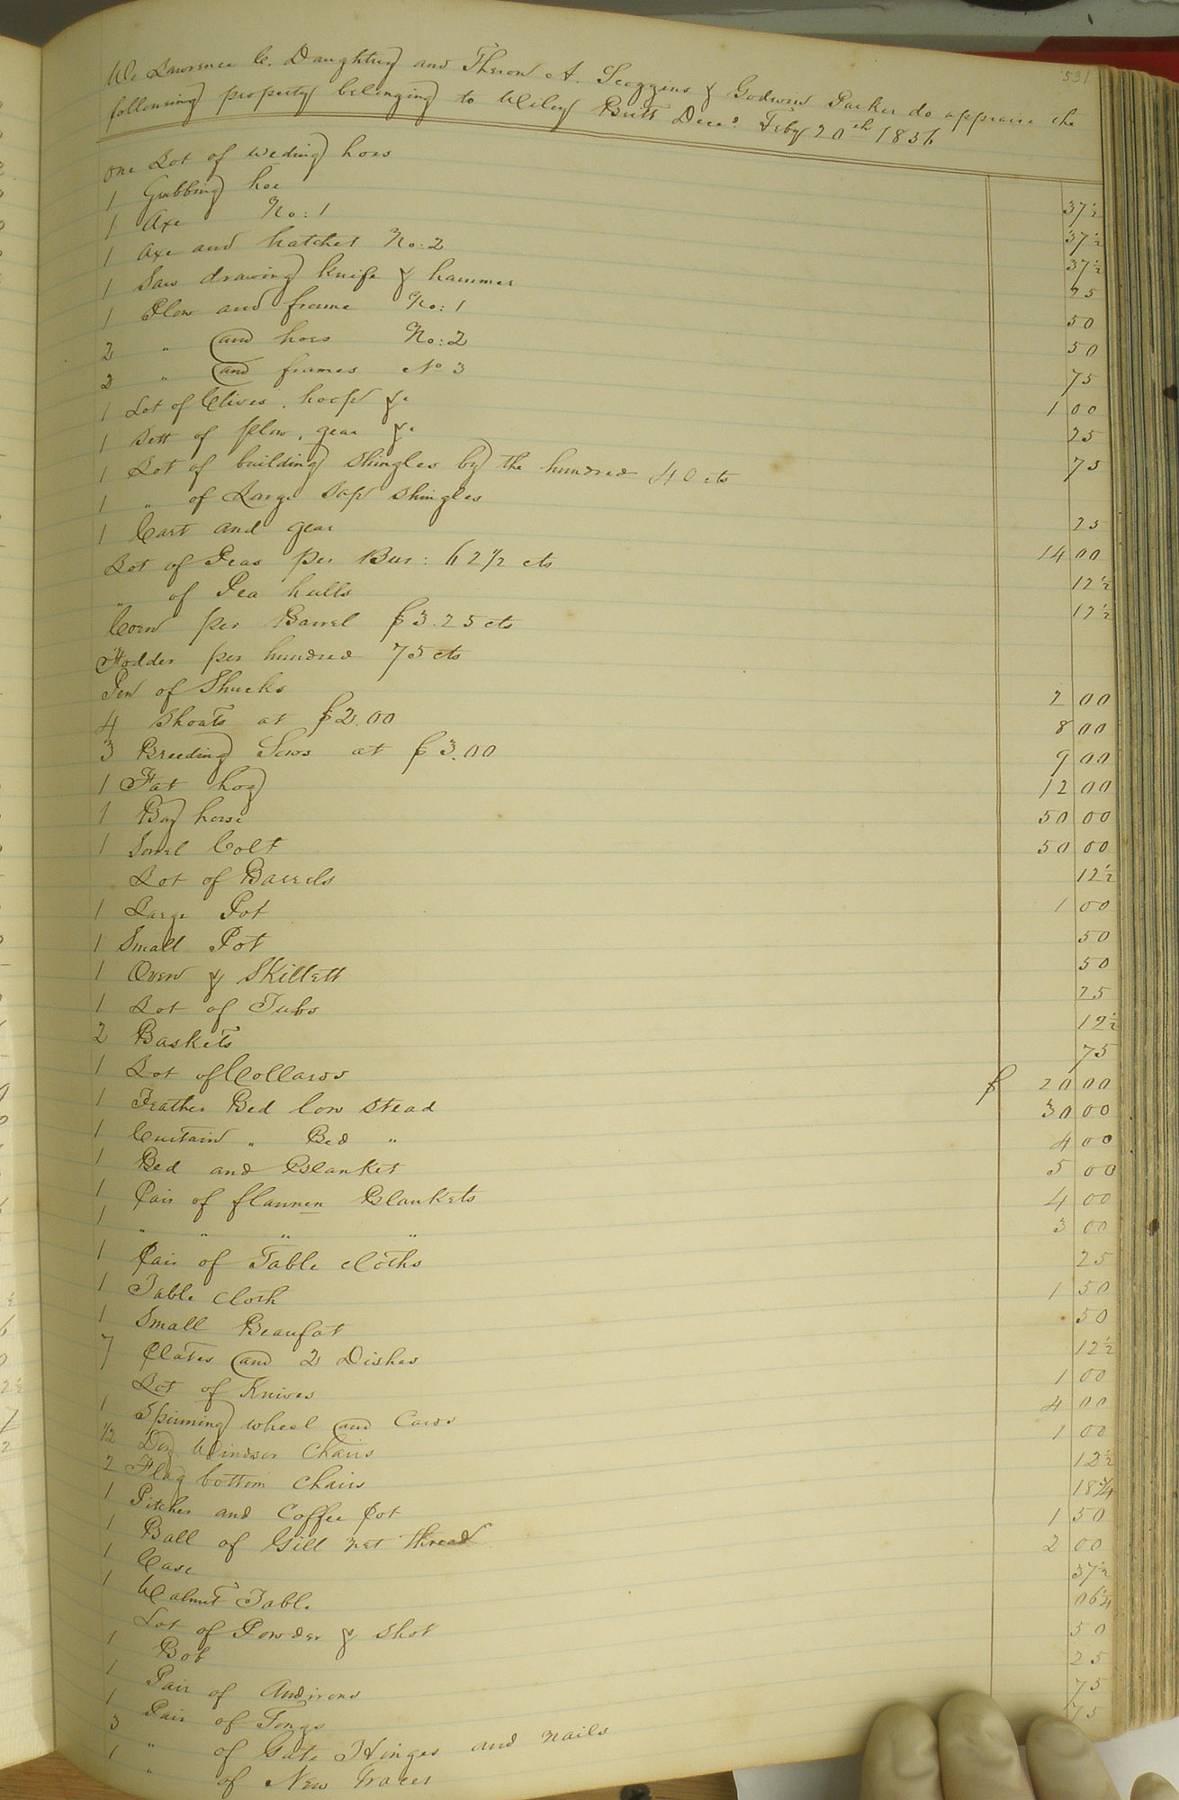 531
We Lawrence C. Daughtry and Theron A. Scoggins & Godwin Parker do appraise the
following property belonging to Wiley Britt Decd. Feby 20th 1856
One Lot of weding hoes 37½
1 Grubbing hoe 37½
1 Axe No: 1 37½
1 Axe and hatchet No: 2 75
1 Saw drawing knife & hammer 50
1 Plow and frame No: 1 50
2 " and hoes No: 2 75
2 " and frames No 3 1 00
1 Lot of Clives, hoops &c 25
1 Sett of plow, gear &c 75
1 Lot of building shingles by the hundred 40 cts
1 " of Large sap shingles 25
1 Cart and gear 14 00
Lot of Peas per Bus: 62½ cts 12½
" of Pea hulls 12½
Corn per Barrel $3.25 cts
Fodder per hundred 75 cts
Pen of Shucks 2 00
4 Shoats at $2.00 8 00
3 Breeding Sows at $3.00 9 00
1 Fat hog 12 00
1 Bay horse 50 00
1 Sorrel Colt 50 00
Lot of Barrels 12½
1 Large Pot 1 00
1 Small Pot 50
1 Oven & Skillett 50
1 Lot of Tubs 25
2 Baskets 12½
1 Lot of Collards 75
1 Feather Bed low stead $ 20 00
1 Curtain " Bed " 30 00
1 Bed and Blanket 4 00
1 Pair of flannen Blankets 5 00
1 " " " " 4 00
1 Pair of Table cloths 3 00
1 Table cloth 25
1 Small Beaufat 1 50
7 Plates and 2 Dishes 50
Lot of Knives 12½
1 Spinning wheel and Cards 1 00
½ Doz Windsor Chairs 4 00
2 Flag bottom chairs 1 00
1 Pitcher and Coffee Pot 12½
1 Ball of Gill net thread 18¾
1 Case 1 50
1 Walnut Table 2 00
Lot of Powder & shot 37½
1 Bob 06¼
1 Pair of Andirons 50
1 Pair of Tongs 25
3 " of Gate Hinges and nails 75
1 " of New Traces 75